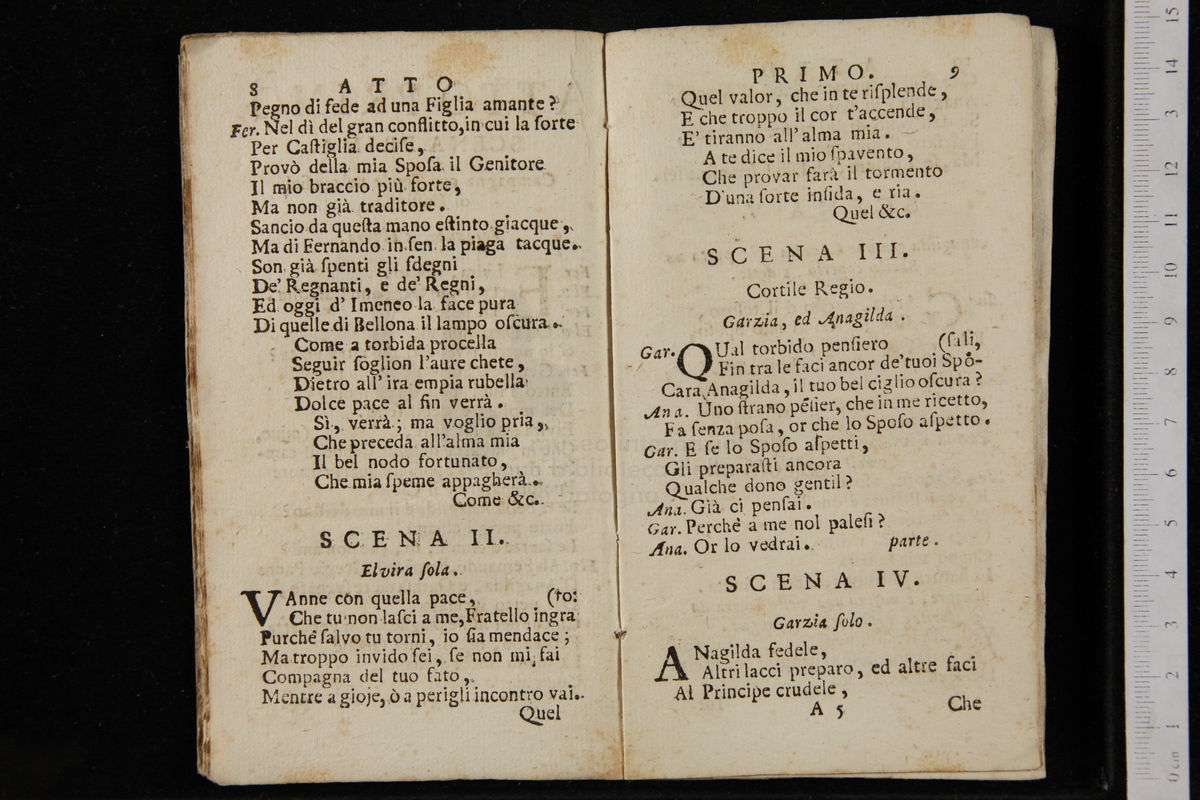 8 ATTO
Pegno di fede ad una Figlia amante?
Fer. Nel dì del gran conflitto, in cui la ſorte
Per Caſtiglia deciſe,
Provò della mia Spoſa il Genitore
Il mio braccio più forte,
Ma non già traditore.
Sancio da queſta mano eſtinto giacque,
Ma di Fernando in ſen la piaga tacque.
Son già ſpenti gli ſdegni
De' Regnanti, e de' Regni,
Ed oggi d' Imeneo la face pura
Di quelle di Bellona il lampo oſcura.
Come a torbida procella
Seguir ſoglion l'aure chete,
Dietro all' ira empia rubella
Dolce pace al fin verrà.
Sì, verrà; ma voglio pria,
Che preceda all'alma mia
Il bel nodo fortunato,
Che mia ſpeme appagherà.
Come &c.
SCENA II.
Elvira ſola.
VAnne con quella pace, (to:
Che tu non laſci a me, Fratello ingra
Purché ſalvo tu torni, io ſia mendace;
Ma troppo invido ſei, ſe non mi fai
Compagna del tuo fato,
Mentre a gioje, ò a perigli incontro vai.
Quel
PRIMO. 9
Quel valor, che in te riſplende,
E che troppo il cor t'accende,
E' tiranno all' alma mia.
A te dice il mio ſpavento,
Che provar farà il tormento
D'una ſorte inſida, e ria.
Quel &c.
SCENA III.
Cortile Regio.
Garzia, ed Anagilda.
Gar. QUal torbido penſiero (ſali,
Fin tra le faci ancor de' tuoi Spō-
Cara Anagilda, il tuo bel ciglio oſcura?
Ana. Uno ſtrano pēſier, che in me ricetto,
Fa ſenza poſa, or che lo Spoſo aſpetto.
Gar. E ſe lo Spoſo aſpetti,
Gli preparaſti ancora
Qualche dono gentil?
Ana. Già ci penſai.
Gar. Perchè a me nol paleſi?
Ana. Or lo vedrai. parte.
SCENA IV.
Garzia ſolo.
ANagilda fedele,
Altri lacci preparo, ed altre faci
Al Principe crudele,
A 5 Che
0 cm 1 2 3 4 5 6 7 8 9 10 11 12 13 14 15